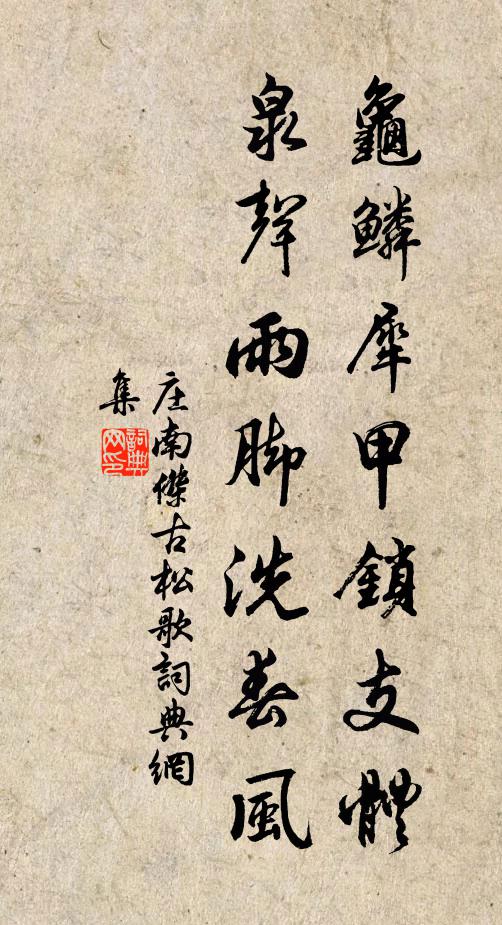 龜鱗犀甲鎖支體
泉聲雨脚洗春風
庄南傑古松歌詞典網
集
詞典
网印